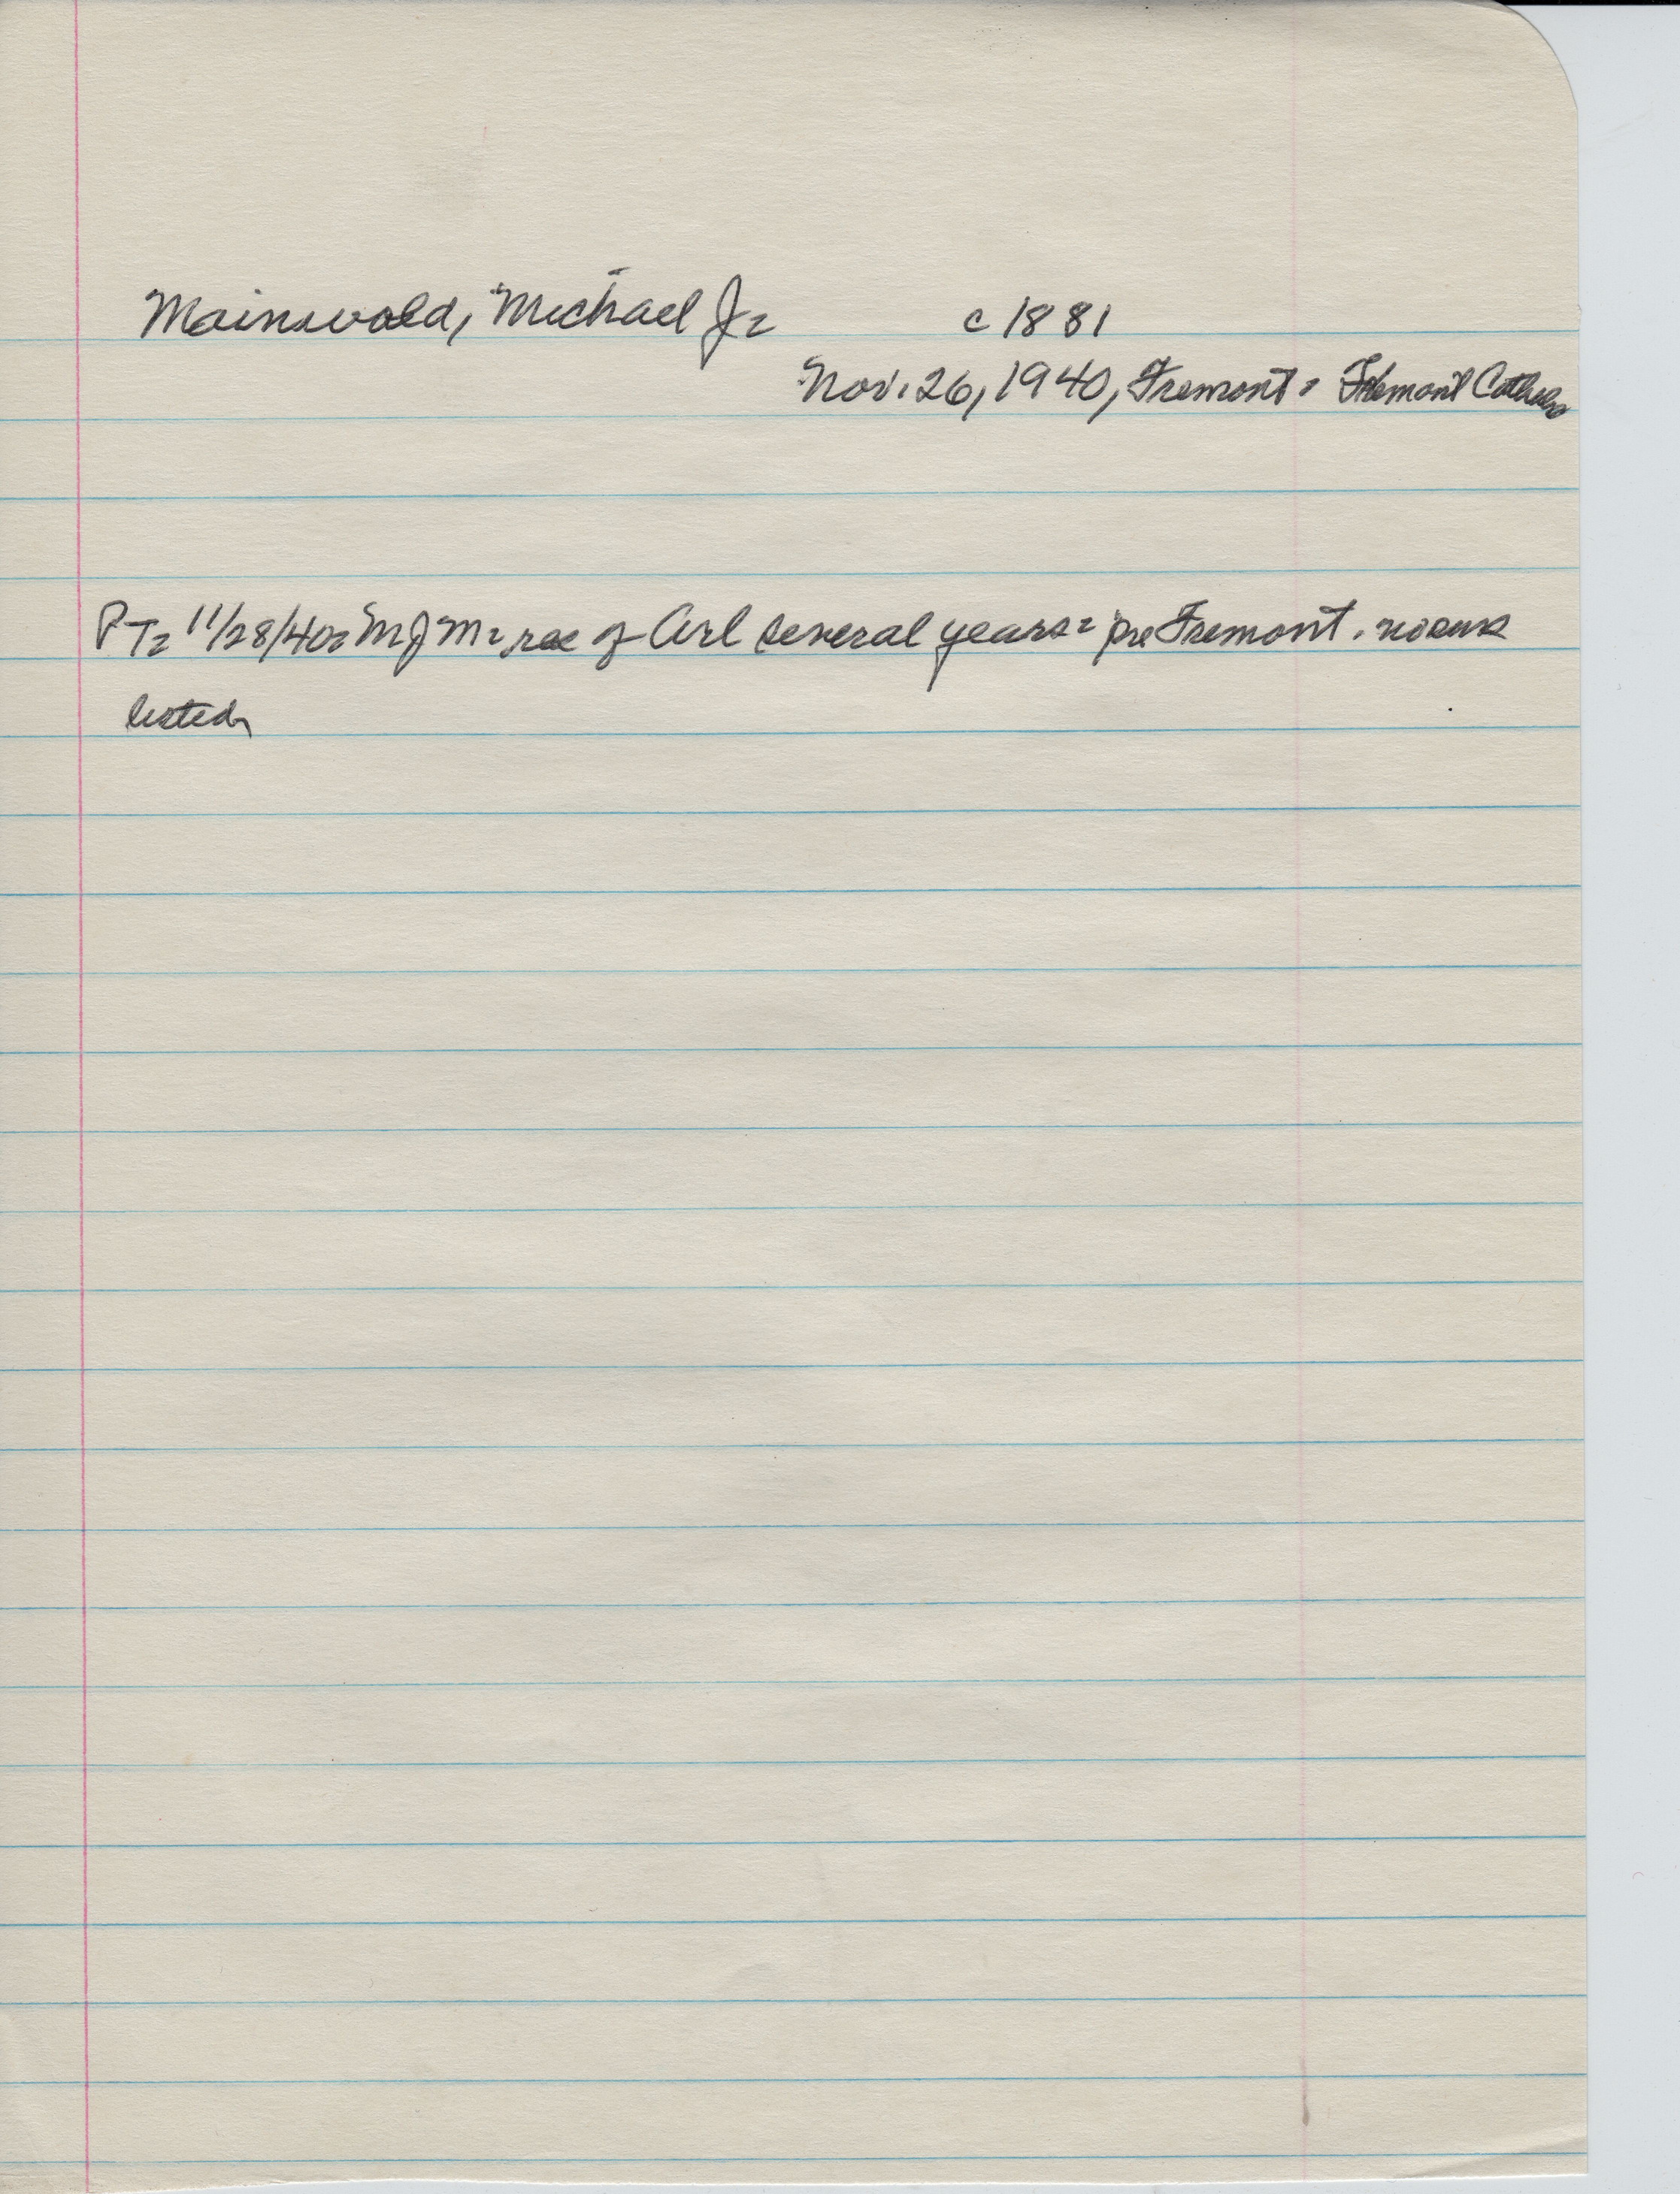 Mainswold, Michael J=
c 1881
Nov. 26, 1940, Fremont = Fremont Catholic
PT= 11/28/40= MJM= res of Arl several years= pre Fremont. no
listed